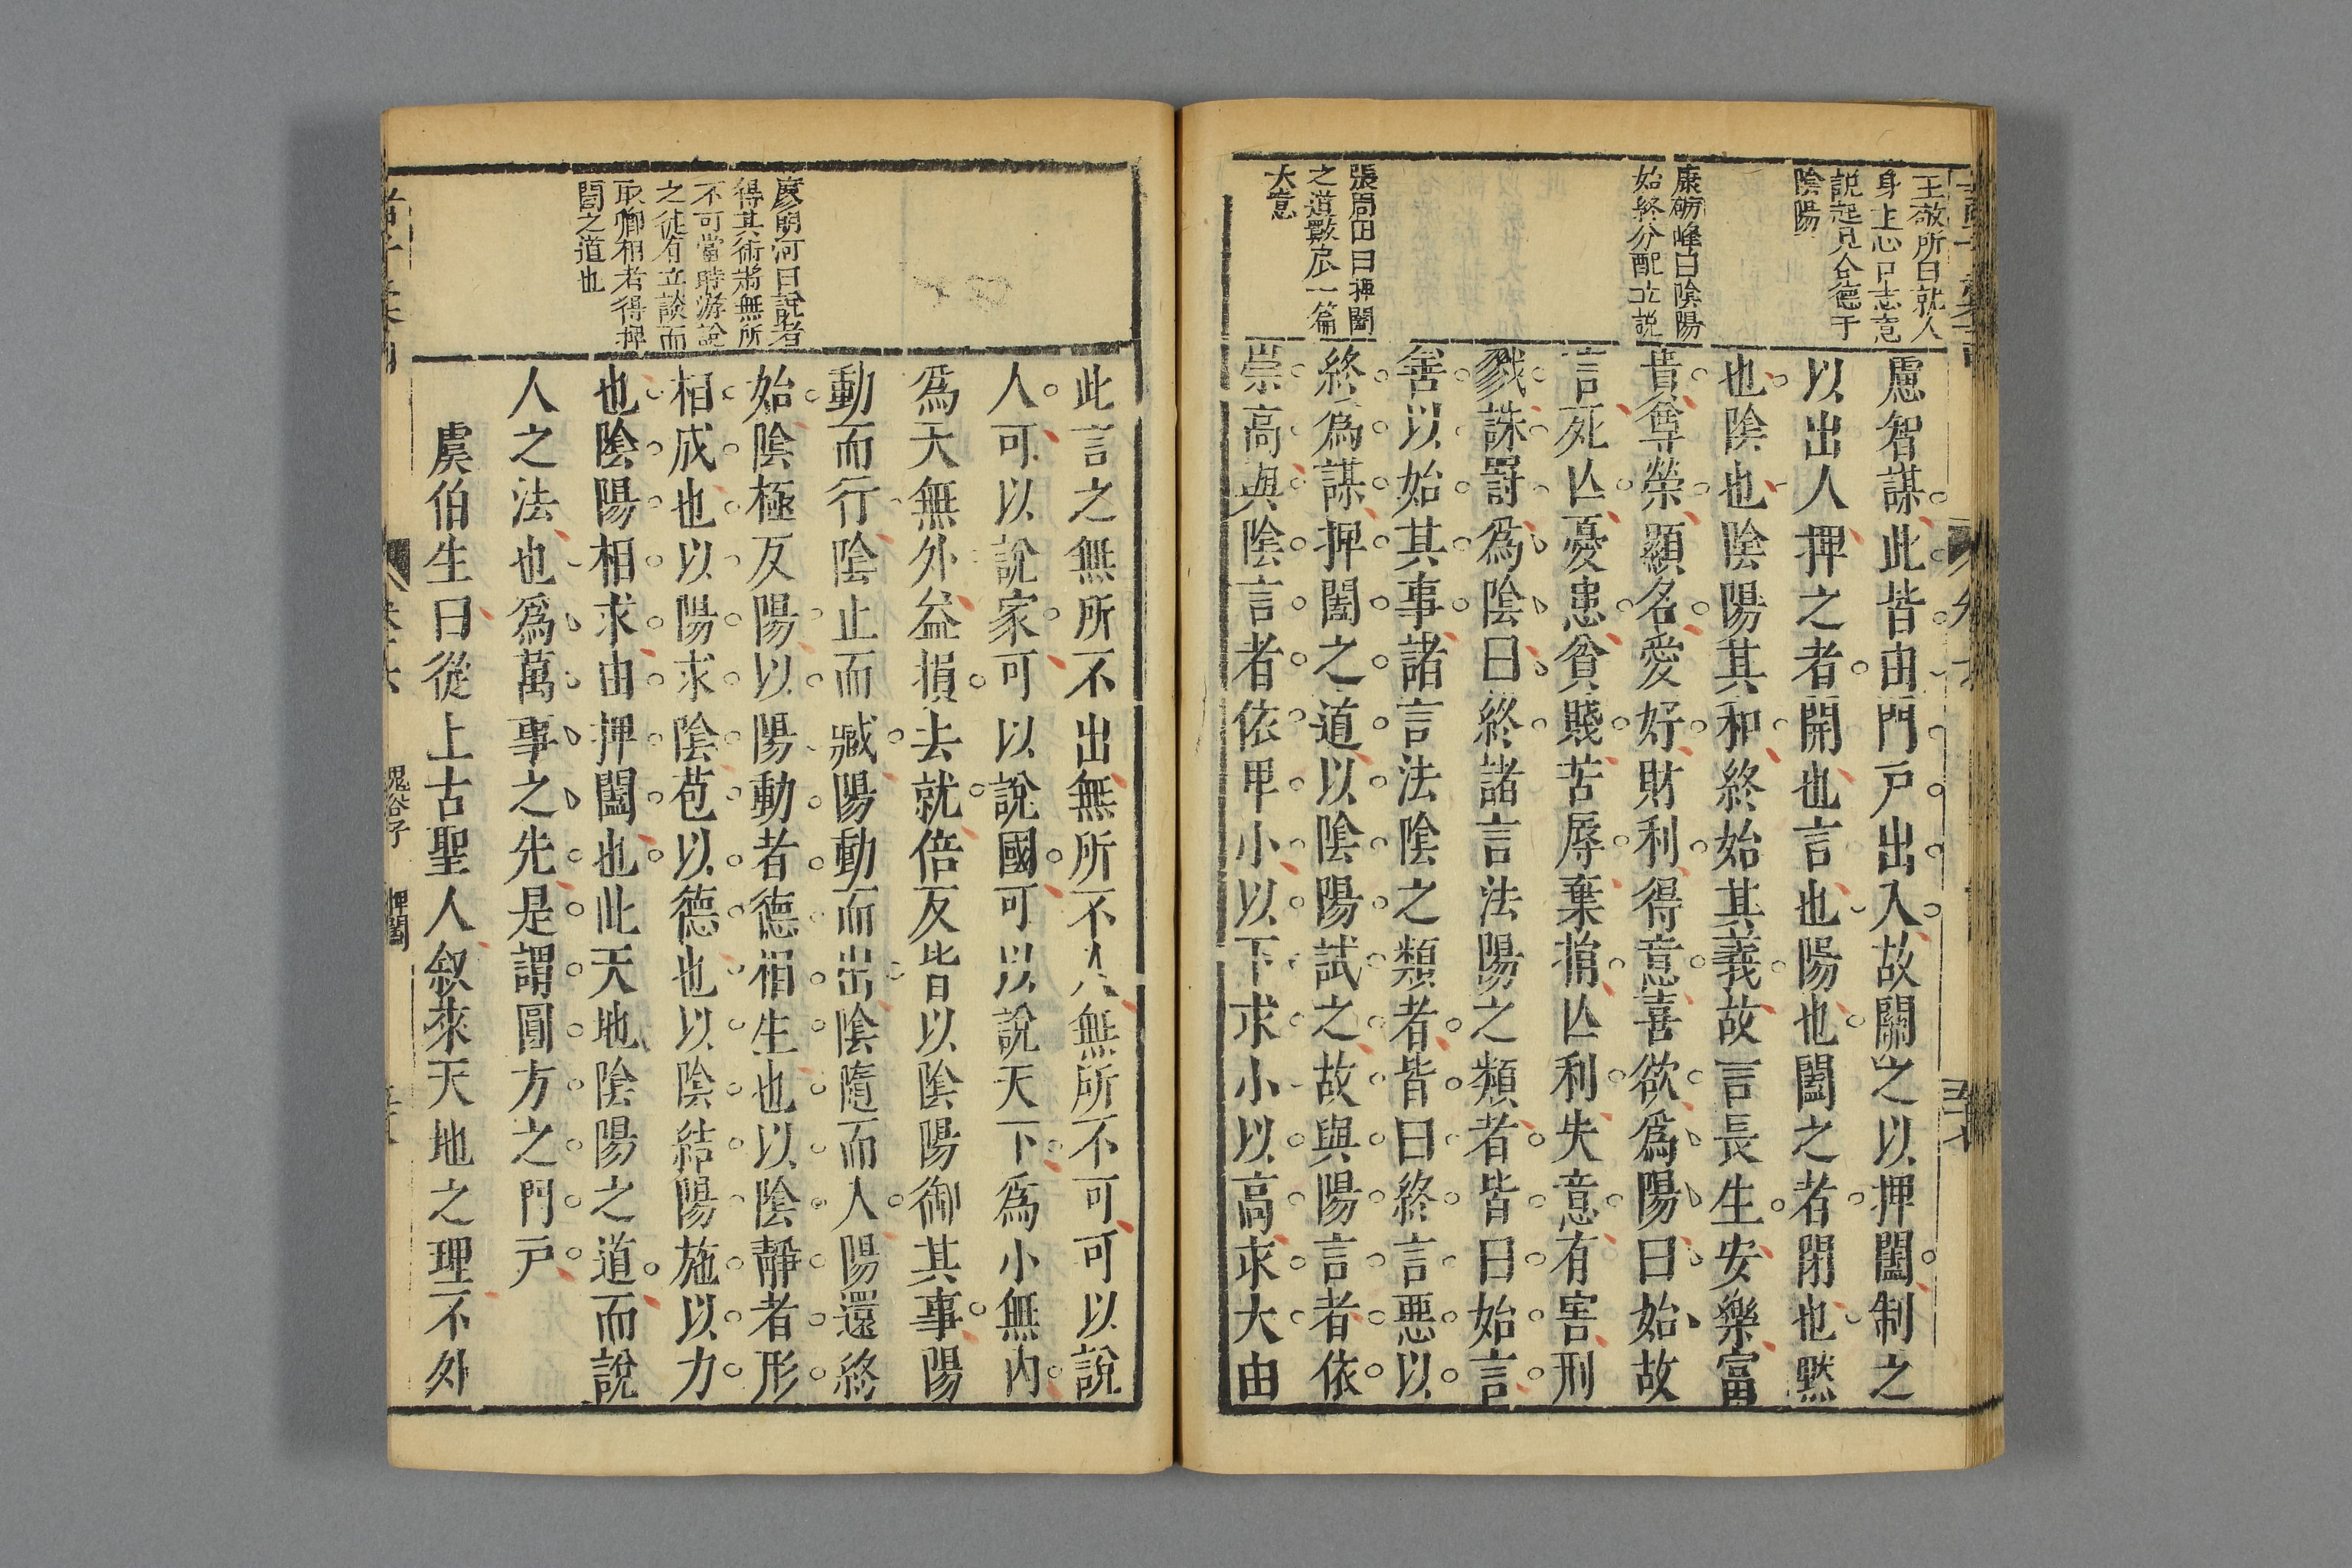 王敬所曰就人
身上心口志意
説起見合德于
陰陽
康礪峰曰陰陽
始終分配立説
張周田曰捭闔
之道數后一篇
大意
慮智謀此皆由門戸出入故關之以捭闔制之
以出人捭之者開也言也陽也闔之者閉也黙
也陰也陰陽其和終始其義故言長生安樂富
貴尊榮顯名愛好財利得意喜欲爲陽曰始故
言死亾憂患貧賤苦辱棄損亾利失意有害刑
戮誅罰爲陰曰終諸言法陽之類者皆曰始言
善以始其事諸言法陰之類者皆曰終言惡以
終爲謀捭闔之道以陰陽試之故與陽言者依
崇高與陰言者依甲小以下求小以高求大由
此言之無所不出無所不入無所不可可以說
人可以說家可以說國可以說天下爲小無內
爲大無外益損去就倍反皆以陰陽御其事陽
動而行陰止而臧陽動而出陰隨而入陽還終
始陰極反陽以陽動者德相生也以陰靜者形
相成也以陽求陰苞以德也以陰結陽施以力
也陰陽相求由捭闔也此天地陰陽之道而說
人之法也爲萬事之先是謂圓方之門戸
虞伯生曰從上古聖人叙來天地之理不外
廖明河曰說者
得其術將無所
不可當時游說
之徒有立談而
取卿相者得捭
闔之道也
鬼谷子 捭闔